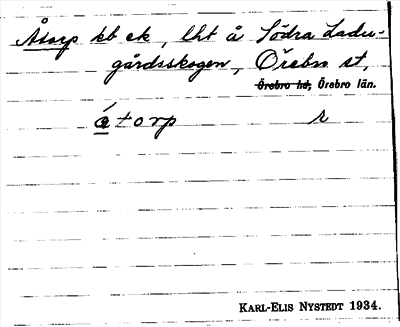 Åtorp kb ek, lht å Södra Ladu-
gårdsskogen, Örebro st,
Örebro hd, Örebro län.
å̀torp r
KARL-ELIS NYSTEDT 1934.